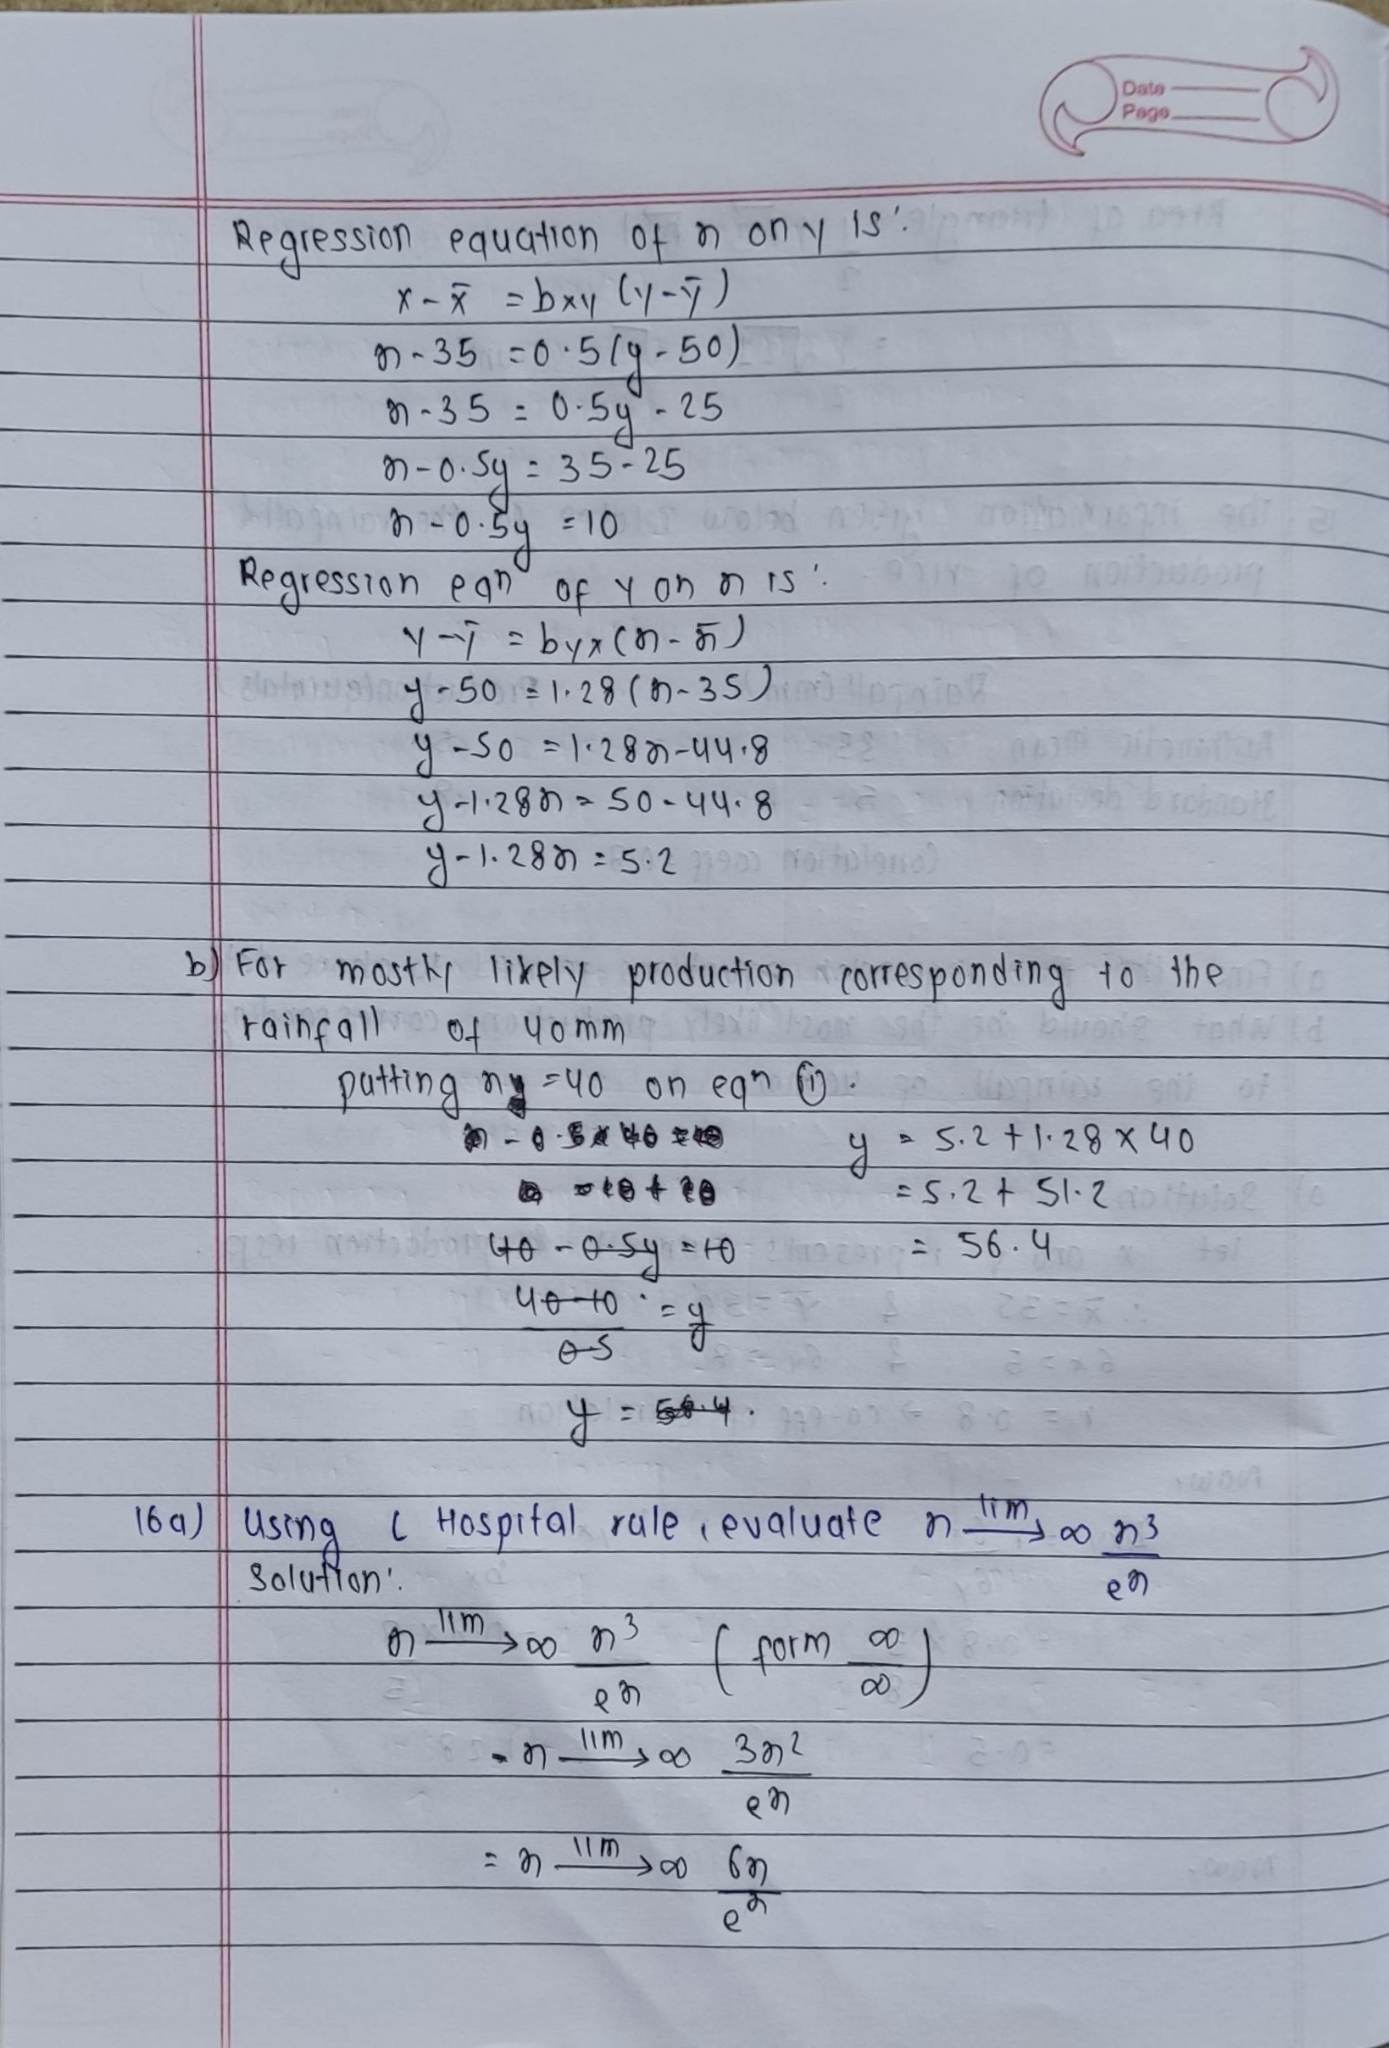 Date
Page
Regression equation of x on y is:
x - x̄ = bxy (y - ȳ)
x - 35 = 0.5(y - 50)
x - 35 = 0.5y - 25
x - 0.5y = 35 - 25
x - 0.5y = 10
Regression eqn of y on x is:
y - ȳ = byx (x - x̄)
y - 50 = 1.28 (x - 35)
y - 50 = 1.28x - 44.8
y - 1.28x = 50 - 44.8
y - 1.28x = 5.2
b) For mostly likely production corresponding to the
rainfall of 40mm
putting x = 40 on eqn (ii).
y = 5.2 + 1.28 × 40
= 5.2 + 51.2
40 - 0.5y = 10 = 56.4
40-10 / 0.5 = y
y = 56.4.
16a) Using L Hospital rule, evaluate x lim→ ∞ x³/eˣ
Solution:
x lim→ ∞ x³/eˣ (form ∞/∞)
= x lim→ ∞ 3x²/eˣ
= x lim→ ∞ 6x/eˣ